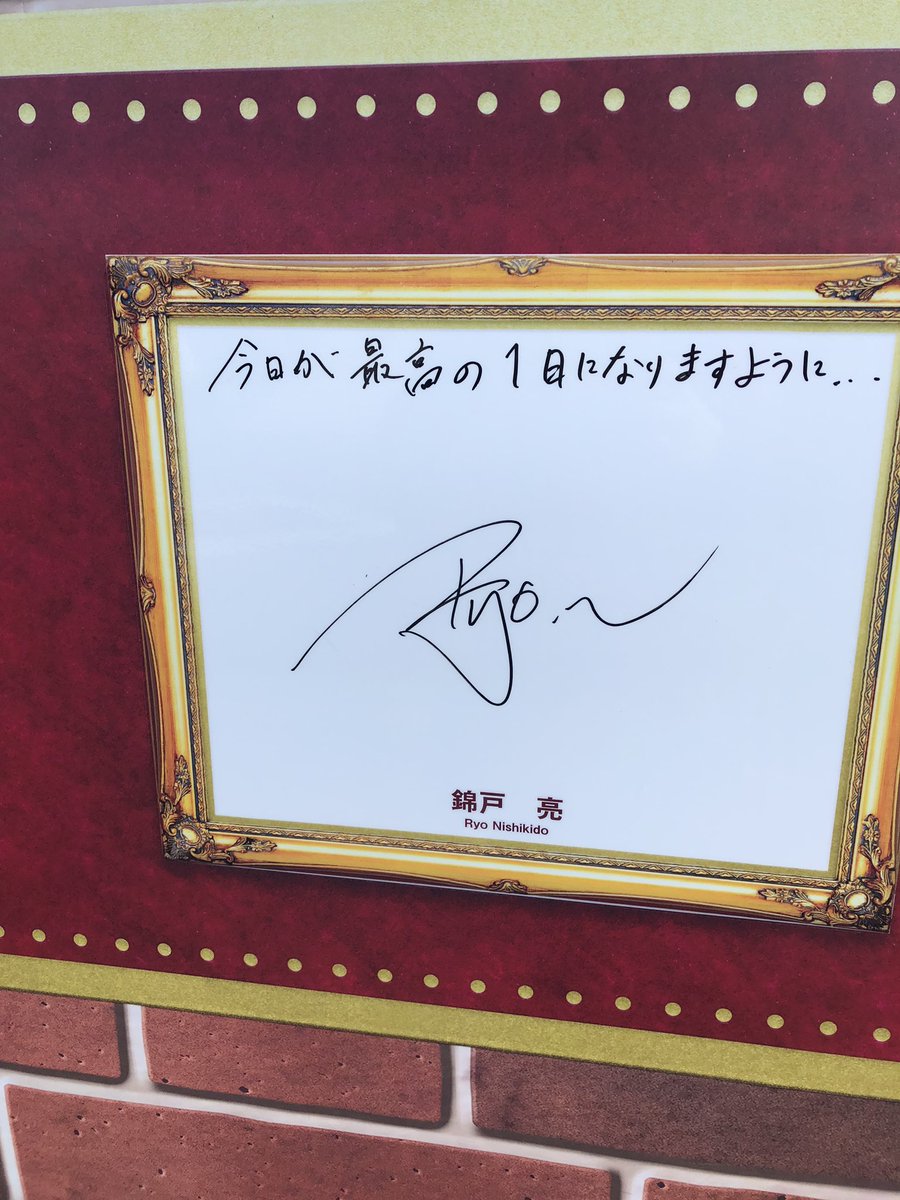 今日が最高の1日になりますように...
Ryo.~
錦戸 亮
Ryo Nishikido